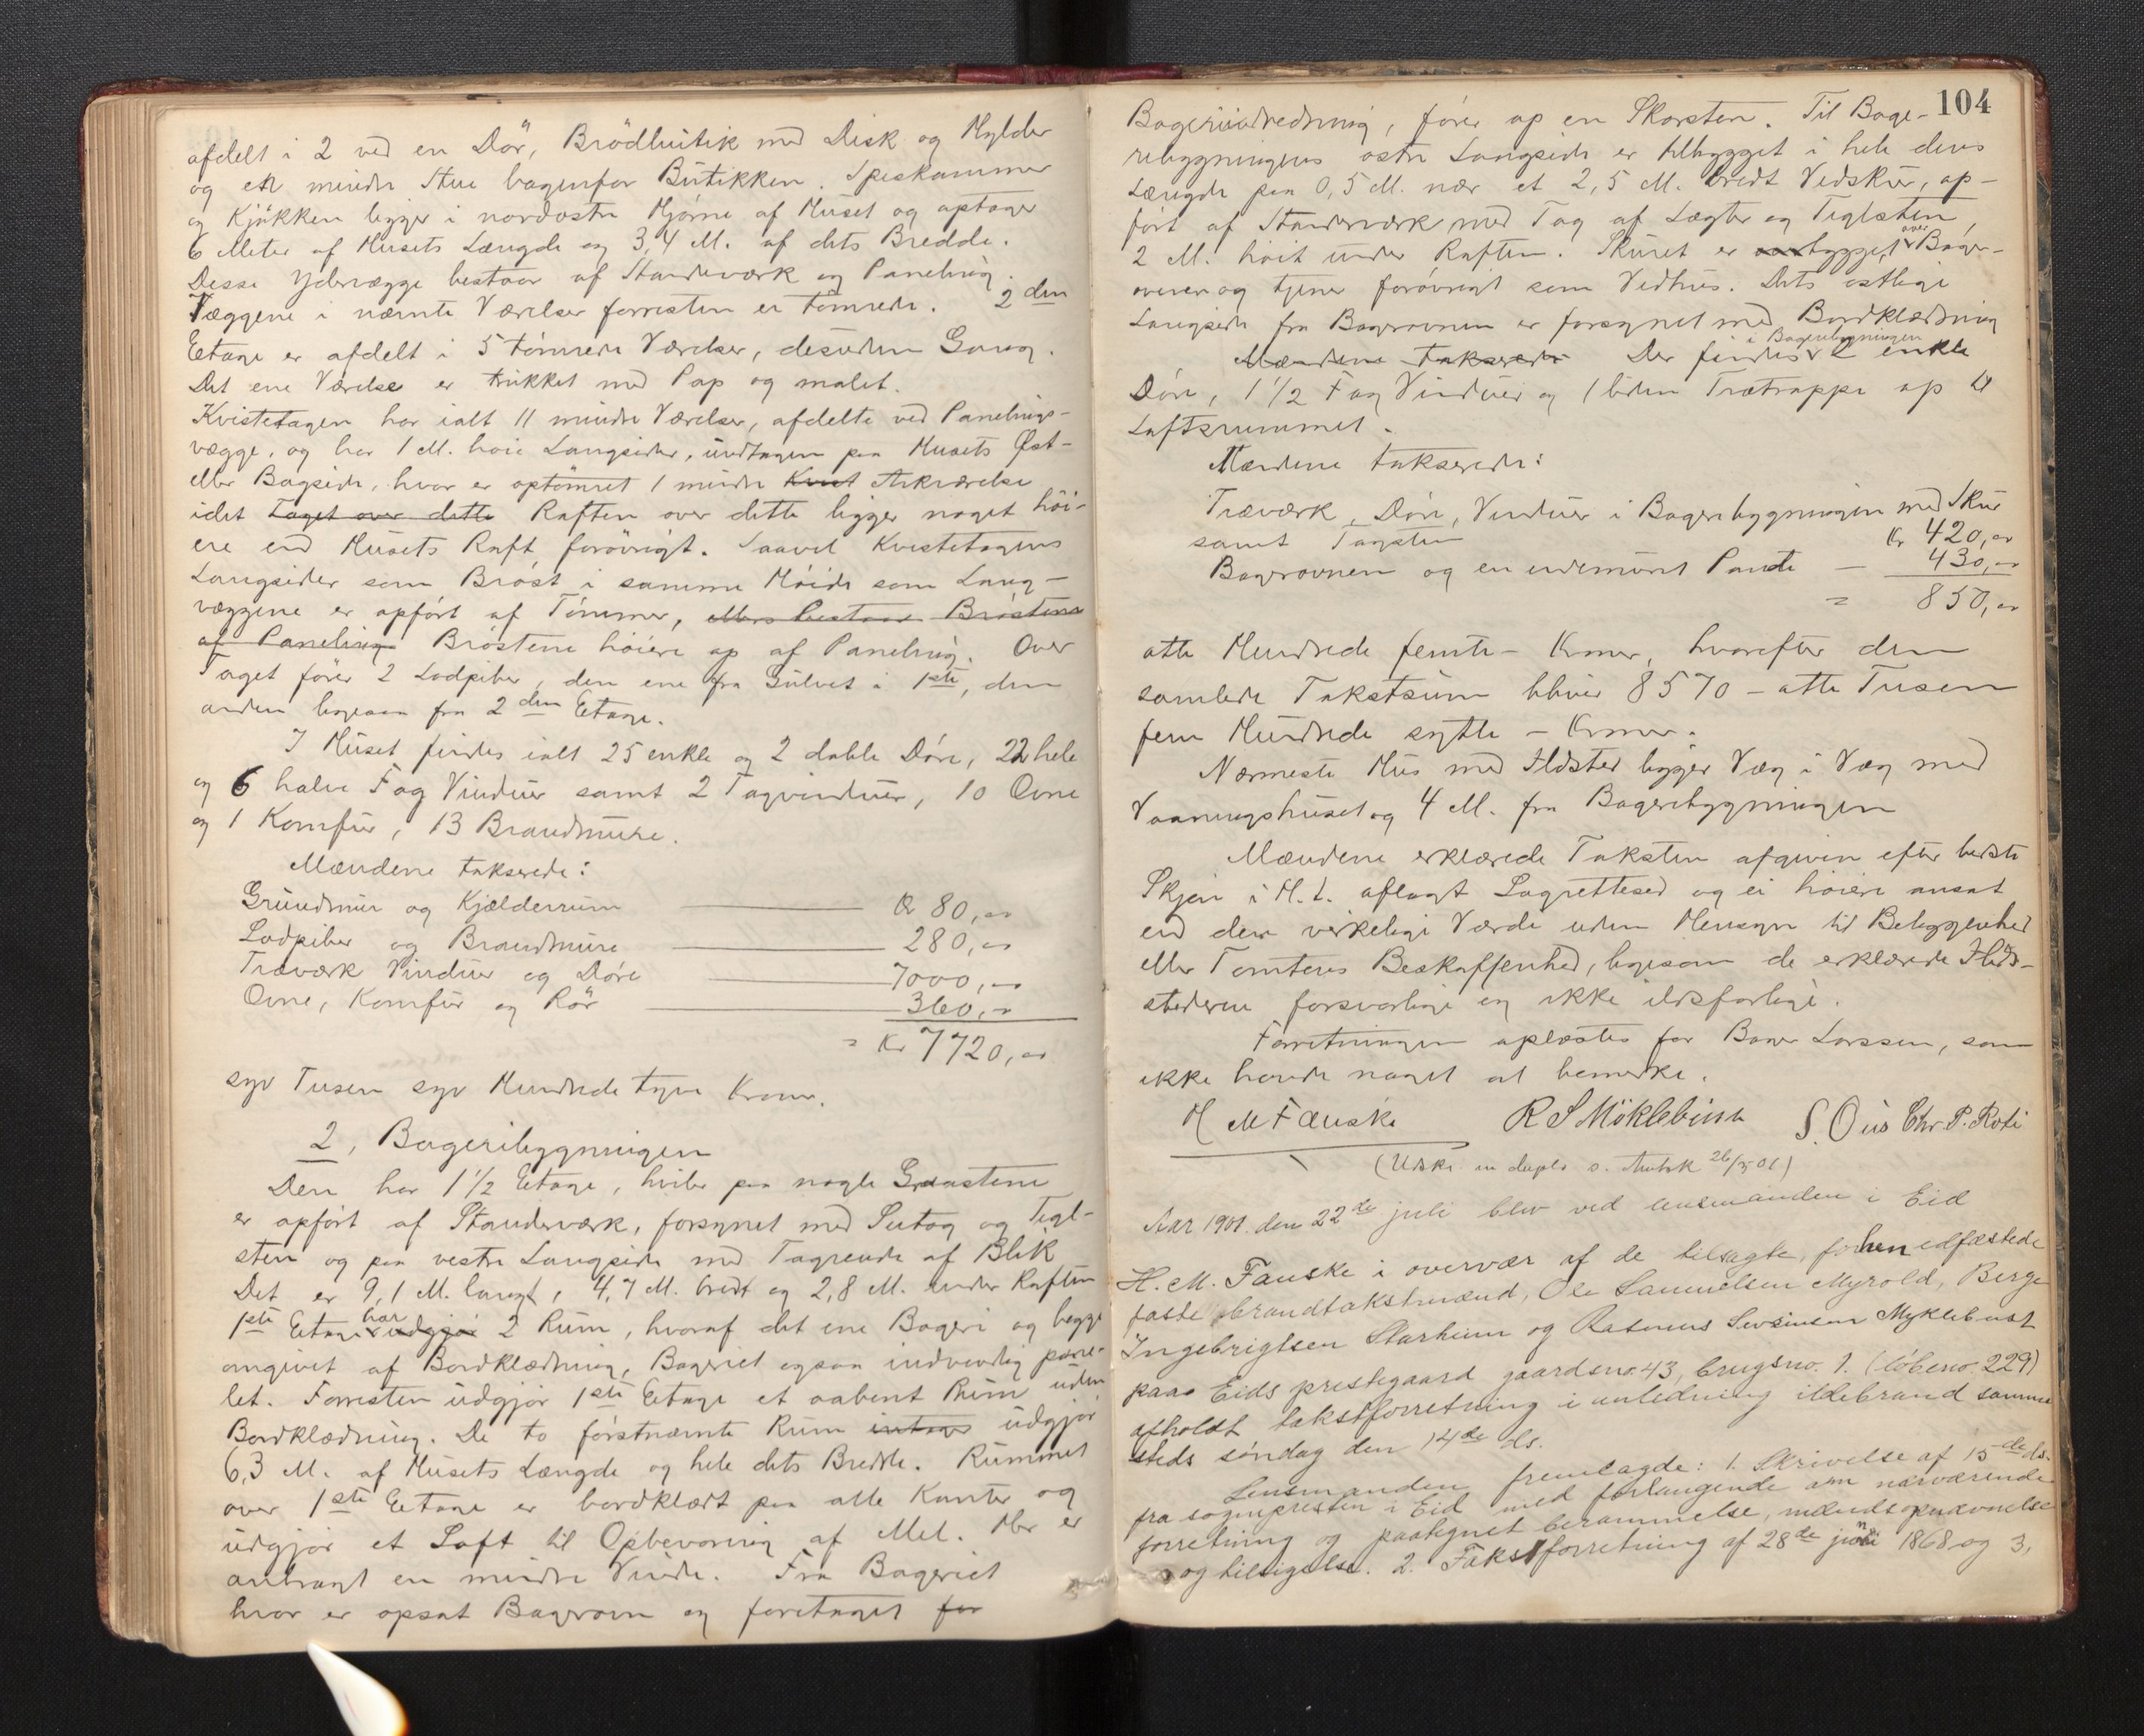 afdelt i 2 ved en Dör, Brödbutik med Disk og Hylder
og en mindre Stue bagenfor Butikken. Spiskammer
og Kjökken ligger i nordostre Hjörne af Huset og optager
6 Meter af Husets Længde og 3,4 M. af dets Bredde.
Desse Ydervægge bestaar af Standeværk og Paneling.
Væggene i nævnte Værelser forresten er tömrede. 2den
Etage er afdelt i 5 tömrede Værelser, desuden Gang.
Det ene Værelse er trukket med Pap og malet.
Kvistetagen har ialt 11 mindre Værelser, afdelte ved Panelings-
vægge, og har 1 M. höie Langsider, undtagen paa Husets Øst-
eller Bagside, hvor er optömret 1 mindre Kvist Arkværelse
idet Taget over dette Raften over dette ligger noget höi-
ere end Husets Raft forövrigt. Saavel Kvistetagens
Langsider som Bröst i samme Höide som Lang-
væggene er opfört af Tömmer, ellers bestaar Bröstene
af Paneling Bröstene höiere op af Paneling. Over
Taget förer 2 Lodpiber, den ene fra Gulvet i 1ste, den
anden ligesaa fra 2den Etage.
I Huset findes ialt 25 enkle og 2 doble Döre, 22 hele
og 6 halve Fag Vinduer samt 2 Tagvinduer, 10 Ovne
og 1 Komfur, 13 Brandmure.
Mændene takserede:
Grundmur og Kjælderrum Kr 80,00
Lodpiber og Brandmure 280,00
Træværk Vinduer og Döre 7000,00
Ovne, Komfur og Rör 360,00
= Kr 7720,00
syv Tusen syv Hundrede tyve Kroner.
2, Bageribygningen
Den har 1 1/2 Etage, hviler paa nogle Graastene
er opfört af Standeværk, forsynet med Sutag og Tegl-
sten og paa vestre Langside med Tagrende af Blik
Det er 9,1 M. langt, 4,7 M. bredt og 2,8 M. under Raften
1ste Etage har udgjör 2 Rum, hvoraf det ene Bageri og begge
omgivet af Bordklædning, Bageriet ogsaa indvendig pane-
let. Forresten udgjör 1ste Etage et aabent Rum uden
Bordklædning. De to förstnævnte Rum udgjör
6,3 M. af Husets Længde og hele dets Bredde. Rummet
over 1ste Etage er bordklædt paa alle Kanter og
udgjör et Loft til Opbevaring af Mel. Her er
anbragt en mindre Vinde. Fra Bageriet
hvor er opsat Bagerovn og foretaget for
104
Bageriindredning, förer op en Skorsten. Til Bage-
ribygningens ostre Langside er tilbygget i hele dens
Længde paa 0,5 M. nær et 2,5 M. bredt Vedskur, op-
fört af Standeværk med Tag af Lægter og Teglsten,
2 M. höit under Raften. Skuret er bygget over Bager-
ovnen og tjener forövrigt som Vedhus. Dets ostlige
Langside fra Bagerovnen er forsynet med Bordklædning
Mændene takserede Der findes i Bageribygningen 2 enkle
Döre, 1 1/2 Fag Vinduer og 1 liden Trætrappe op til
Loftsrummet.
Mændene takserede:
Træværk, Döre, Vinduer i Bageribygningen med Skur
samt Tagsten Kr 420,00
Bagerovnen og en indemuret Pande — 430,00
= 850,00
otte Hundrede femti – Kroner, hvorefter den
samlede Takstsum bliver 8570 – otte Tusen
fem Hundrede sytti – Kroner.
Nærmeste Hus med Ildsted ligger Væg i Væg med
Vaaningshuset og 4 M. fra Bageribygningen
Mændene erklærede Taksten afgiven efter bedste
Skjön i H. t. aflagt Lagrettesed og ei höiere ansat
end den virkelige Værde uden Hensyn til Beliggenhed
eller Tomtens Beskaffenhed, ligesom de erklærede Ild-
stederne forsvarlige og ikke ildsfarlige.
Forretningen oplæstes for Bager Larssen, som
ikke havde noget at bemerke.
H M Fauske R S Möklebust S. Ous Chr. P. Roti
(Udskr. in duplo s. 26/5 01)
Aar 1901. den 22de juli blev ved lensmanden i Eid
H. M. Fauske i overvær af de tilsagte, forhen edfæstede
faste brandtakstmænd, Ole Samuelsen Myrold, Berge
Ingebrigtsen Starheim og Rasmus Sivsensen Myklebust
paa Eids prestegaard gaardsno. 43, brugsno. 1. (löbeno. 229)
afholdt takstforretning i anledning ildebrand samme
steds söndag den 14de ds.
Lensmanden fremlagde: 1. Skrivelse af 15de ds.
fra sognepresten i Eid med forlangende om nærværende
forretning og paategnet berammelse, mændsopnævnelse
og tilsigelse. 2. Takstforretning af 28de juni 1868 og 3,